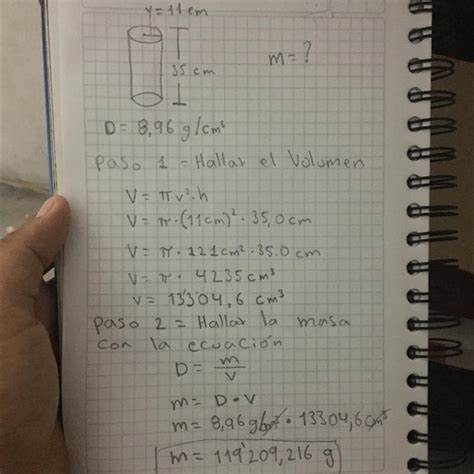 r=11 cm
35 cm
m=?
D= 8,96 g/cm³
Paso 1 = Hallar el Volumen
V= πr²·h
V= π·(11cm)²·35,0cm
V= π·121cm²·35.0cm
V= π· 4235cm³
V= 13304,6 cm³
Paso 2 = Hallar la masa
con la ecuación
D= m/V
m= D·V
m= 8,96 g/cm³ · 13304,6 cm³
m= 119'209,216 g